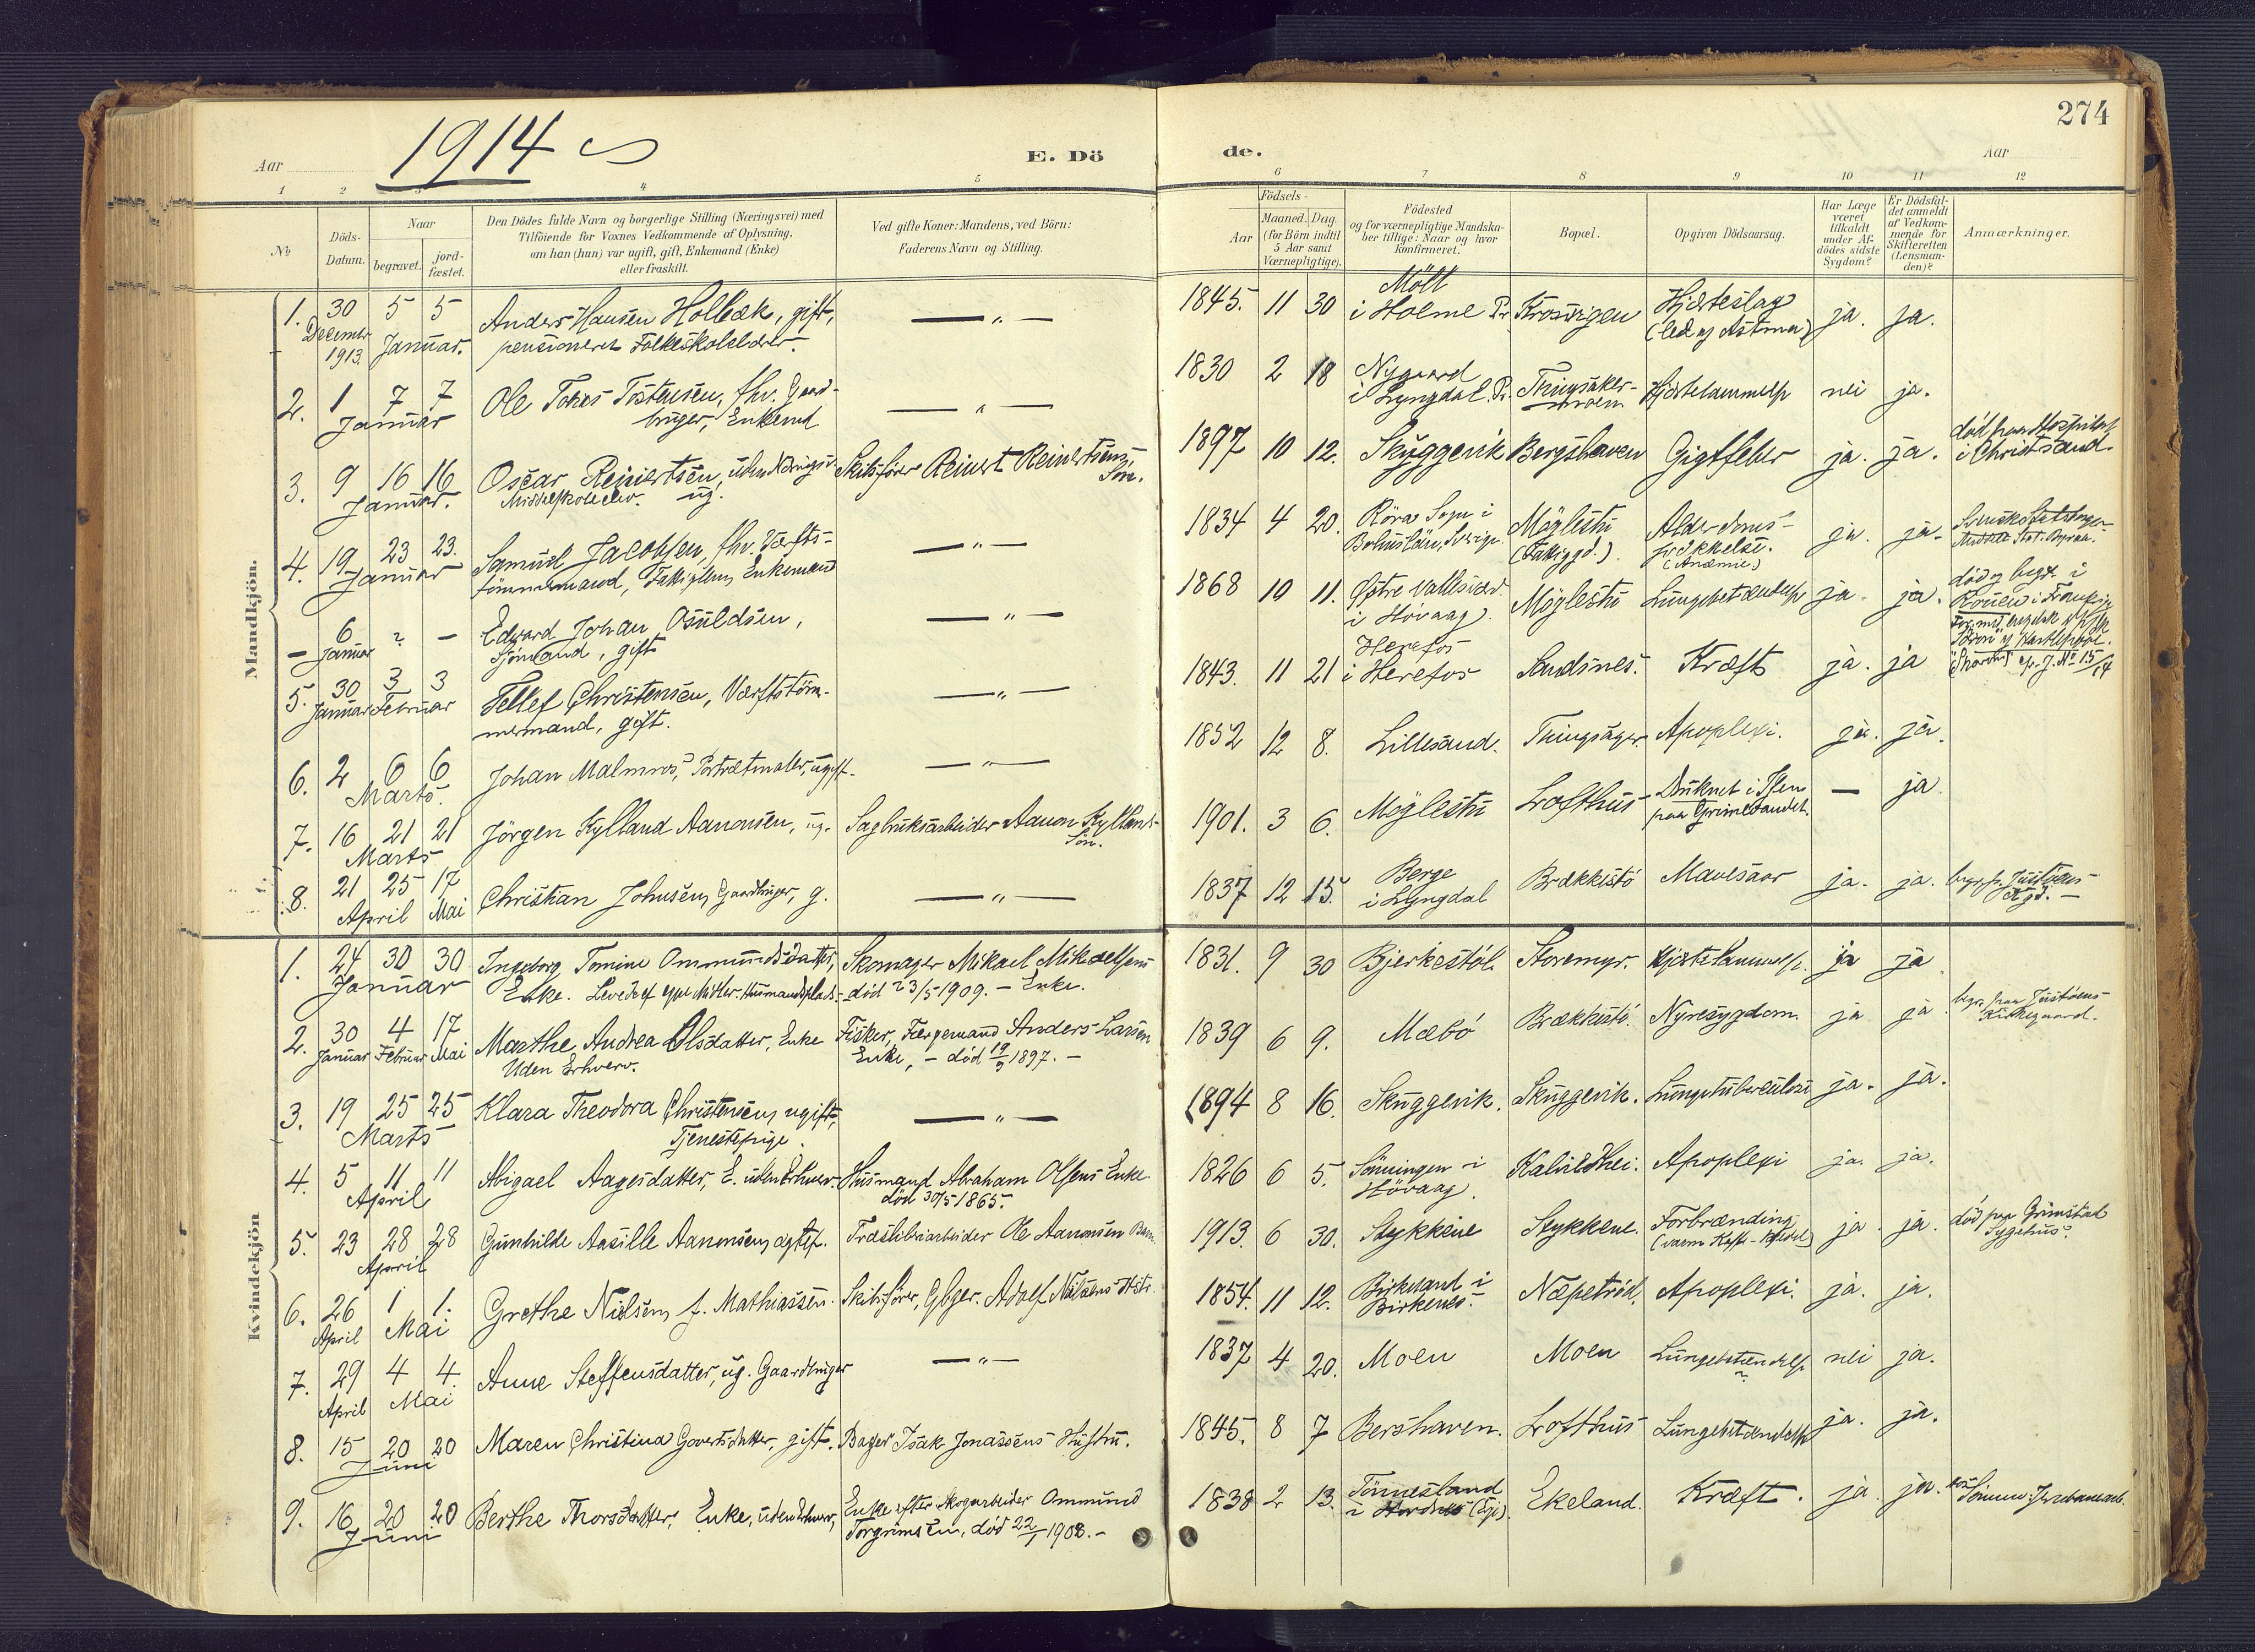 274
Aar 1914
E. Dö de.
Aar
1 2 3 4 5 6 7 8 9 10 11 12
№
Döds-Datum.
Naar
begravet.
jordfæstet.
Den Dödes fulde Navn og borgerlige Stilling (Næringsvei) med
Tilföiende for Voxnes Vedkommende af Oplysning,
om han (hun) var ugift, gift, Enkemand (Enke)
eller fraskilt.
Ved gifte Koner: Mandens, ved Börn:
Faderens Navn og Stilling.
Födsels-
Aar
Maaned. Dag.
(for Börn indtil
5 Aar samt
Værnepligtige).
Födested
og for værnepligtige Mandska-
ber tillige: Naar og hvor
konfirmeret.
Bopæl.
Opgiven Dödsaarsag.
Har Læge
været
tilkaldt
under Af-
dödes sidste
Sygdom?
Er Dödsfal-
det anmeldt
af Vedkom-
mende for
Skifteretten
(Lensman-
den)?
Anmærkninger.
Mandkjön.
1. 30 December 1913. 5 5 Januar. Anders Hansen Holbæk, gift,
pensioneret Folkeskolelærer.
— „ — 1845. 11 30 Mölt
i Holme Pr. Krosvigen Hjerteslag
(led af Astma) ja. ja.
2. 1 7 7 Januar Ole Tobias Tostensen, fhv. Gaard-
bruger, Enkemd
— „ — 1830 2 18 Nygaard
i Lyngdal. Pr. Hjertelammelse nei ja.
3. 9 16 16 Januar. Oscar Reinertsen,
Middelskoleelev. ug.
Skibsförer Reinert Reinertsens
Sön.
1897 10 12. Skuggevik Bergshaven Gigtfeber ja. ja. död paa Hospitalet
i Christsand.
4. 19 23 23. Januar Samuel Jacobsen, fhv. Værfts-
tömmermand, Enkemand
— „ — 1834 4 20. Röra Sogn i
Bohuslän, Sverige. Möglestu
(Fattiggd.). Alderdoms-
svækkelse.
(Anæmie) ja. ja.
— 6 Januar ? — Edvard Johan Osuldsen,
Sjömand, gift
— „ — 1868 10 11. Østre Vallesværd
i Høvaag. Möglestu Lungebetændelse ja. ja. död og begr. i
Rouen i Frankrig
5. 30 Januar 3 3 Februar Tellef Christensen, Værftstöm-
mermand, gift.
— „ — 1843. 11 21 Herefos
i Herefos Sandsnes. Kræft ja. ja
6. 2 6 6 Marts. Johan Malmros, Portrætmaler, ugift.
— „ — 1852 12 8. Lillesand. Apoplexi. ja. ja.
7. 16 21 21 Marts Jörgen Kylland Aanonsen, ug.
Sagbruksarbeider Aanon Kyllands
Sön.
1901. 3 6. Möglestu Lofthus Druknet i Isen
paa Grimevandet. — ja
8. 21 25 April 17 Mai Christian Johnsen, Gaardbruger, g.
— „ — 1837 12 15. Berge
i Lyngdal Brækkestö Mavesaar ja. ja. begr. paa Justöens
Kgd. —
Kvindekjön
1. 24 30 30 Januar Ingeborg Tomine Ommundsdatter,
Enke. Levede af egne Midler. Husmandsplads
Skomager Mikael Mikaelsens
död 23/5 1909. — Enke.
1831. 9 30 Bjerkestöl. Storemyr. Hjertelammelse. ja ja
2. 30 Januar 4 Februar 17 Mai Marthe Andrea Olsdatter, Enke
Uden Erhverv.
Fisker, Færgemand Anders Larsen
Enke, — död 19/9 1897. —
1839 6 9. Mæbö Brækkestö. Nyresygdom. ja ja begr. paa Justöens
Kirkegaard.
3. 19 25 25 Marts Klara Theodora Christensen, ugift,
Tjenestepige.
— „ — 1894 8 16. Skuggevik. Skuggevik. Lungetuberculose ja. ja.
4. 5 11 11 April Abigael Aagesdatter, E. uden Erhverv.
Husmand Abraham Olsens Enke.
död 30/5 1865.
1826 6 5. i
Hövaag. Kalvildhei. Apoplexi ja. ja.
5. 23 28 28 April Gunhilde Aasille Aanonsen, ægtef.
Træsliberiarbeider Ole Aanonsen Barn.
1913. 6 30. Stykkene Stykkene. Forbrænding
(varm Kaffe-) ja. ja. död paa Grimstad
Sygehus.
6. 26 April 1 1. Mai Grethe Nielsen, f. Mathiassen.
Skibsförer, Gbger. Adolf Nielsens Hstr.
1854. 11 12. Birkeland i
Birkenes. Næpetröd. Apoplexi. ja. ja.
7. 29 April 4 4. Mai Anne Steffensdatter, ug. Gaardbruger
— „ — 1837 4 20. Moen Moen Lungebetændelse nei ja.
8. 15 20 20 Juni Maren Christina Govertsdatter, gift.
Bager Isak Jonassens Hustru.
1845. 8 7 Bershaven. Lofthus Lungebetændelse ja. ja.
9. 16 20 20 Juni Berthe Thorsdatter, Enke, uden Erhverv,
Enke efter Skogarbeider Ommund
Torgrimsen, död 22/1 1908. —
1838 2 13. Tönnesland
i Ekeland. Kræft. ja. ja.